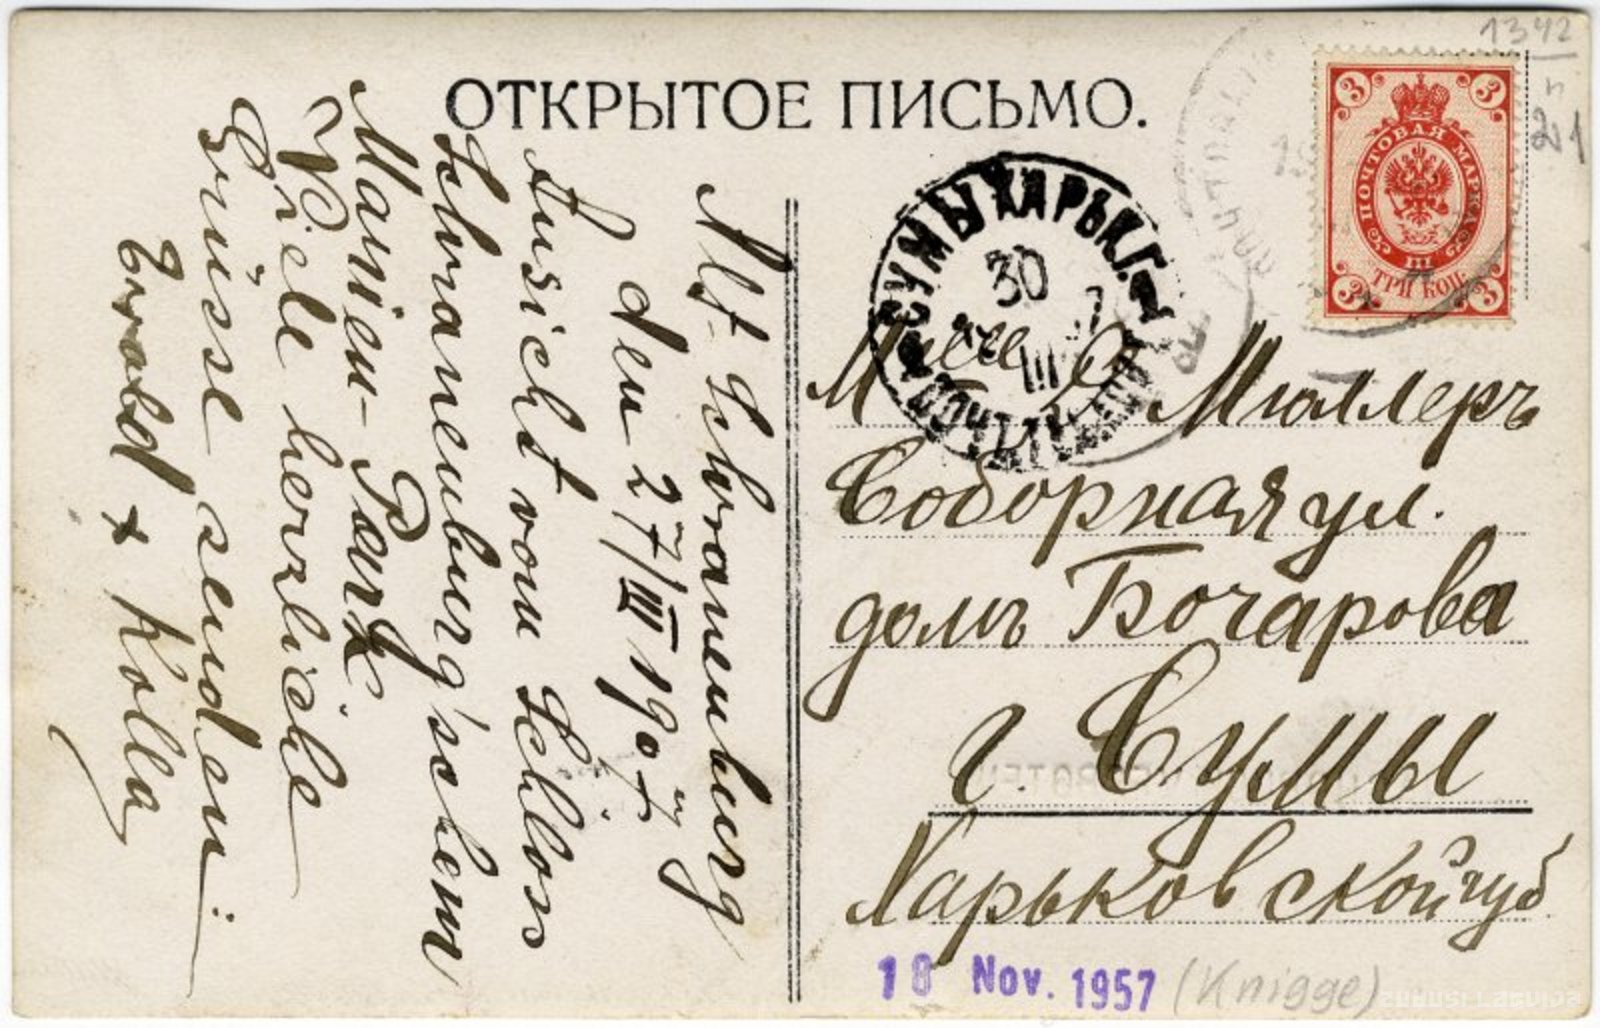 ОТКРЫТОЕ ПИСЬМО.
1342
21
3 3
ПОЧТОВАЯ МАРКА
III
ТРИ КОП.
3 3
СУМЫ ХАРЬК.Г.
30
III
7
Alt-Schwanenburg
den 27/III 1907
Ansicht vom Schloss
Schwanenburg'schem
Marien-Park
Viele herzliche
Grüsse senden:
Ewald + Kolla
М Мюллеръ
Соборная ул.
домъ Бочарова
г. Сумы
Харьковской губ.
18 Nov. 1957 (Knigge)
ZUDUSI LATVIJA